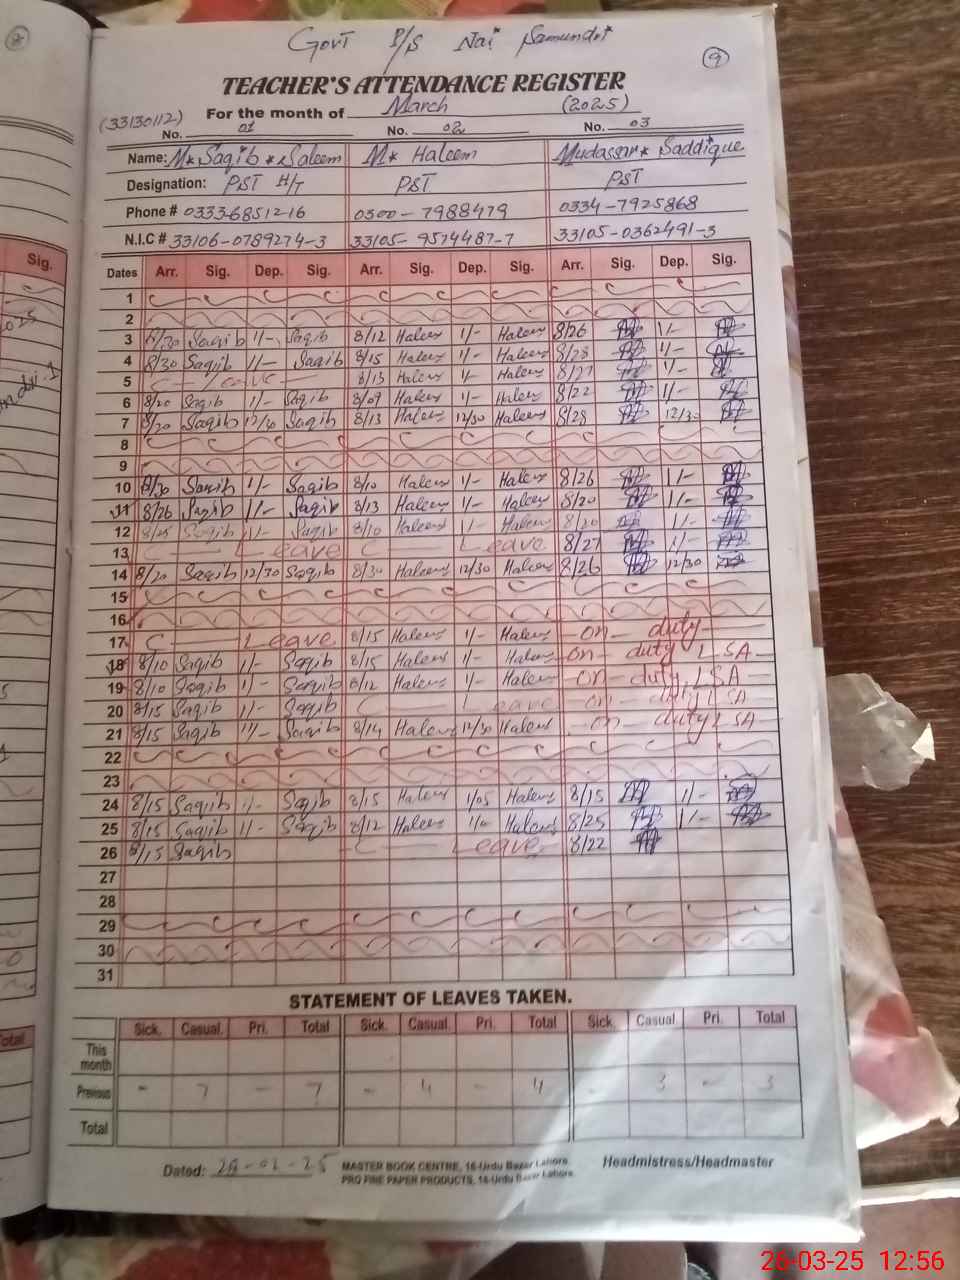 Govt P/S Nai Samundri
9
TEACHER'S ATTENDANCE REGISTER
(33130112) For the month of March (2025)
No. 01 No. 02 No. 03
Name: M* Saqib * Saleem M* Haleem Mudassar* Saddique
Designation: PST H/T PST PST
Phone # 0333-6851216 0300-7988479 0334-7925868
N.I.C # 33106-0789274-3 33105-9574487-7 33105-0362491-3
Dates Arr. Sig. Dep. Sig. Arr. Sig. Dep. Sig. Arr. Sig. Dep. Sig.
1
2
3 8/30 Saqib 1/- Saqib 8/12 Haleem 1/- Haleem 8/26 1/-
4 8/30 Saqib 1/- Saqib 8/15 Haleem 1/- Haleem 8/28 1/-
5 Leave 8/13 Haleem 1/- Haleem 8/27 1/-
6 8/20 Saqib 1/- Saqib 8/09 Haleem 1/- Haleem 8/22 1/-
7 8/20 Saqib 12/30 Saqib 8/13 Haleem 12/30 Haleem 8/28 12/30
8
9
10 8/30 Saqib 1/- Saqib 8/10 Haleem 1/- Haleem 8/26 1/-
11 8/26 Saqib 1/- Saqib 8/13 Haleem 1/- Haleem 8/20 1/-
12 8/25 Saqib 1/- Saqib 8/10 Haleem 1/- Haleem 8/20 1/-
13 C Leave C Leave 8/27 1/-
14 8/20 Saqib 12/30 Saqib 8/30 Haleem 12/30 Haleem 8/26 12/30
15
16
17 C Leave 8/15 Haleem 1/- Haleem on duty
18 8/10 Saqib 1/- Saqib 8/15 Haleem 1/- Haleem on duty LSA
19 8/10 Saqib 1/- Saqib 8/12 Haleem 1/- Haleem on duty LSA
20 8/15 Saqib 1/- Saqib C Leave on duty LSA
21 8/15 Saqib 1/- Saqib 8/14 Haleem 12/30 Haleem on duty LSA
22
23
24 8/15 Saqib 1/- Saqib 8/15 Haleem 1/05 Haleem 8/15 1/-
25 8/15 Saqib 1/- Saqib 8/12 Haleem Haleem 8/25 1/-
26 8/15 Saqib C Leave 8/22
27
28
29
30
31
STATEMENT OF LEAVES TAKEN.
Sick. Casual. Pri. Total Sick. Casual. Pri. Total Sick. Casual. Pri. Total
This month
Previous - 7 - 7 - 4 - 4 - 3 - 3
Total
Dated: MASTER BOOK CENTRE, 16-Urdu Bazar Lahore. Headmistress/Headmaster
PRO FINE PAPER PRODUCTS, 14-Urdu Bazar Lahore.
Sig.
26-03-25 12:56